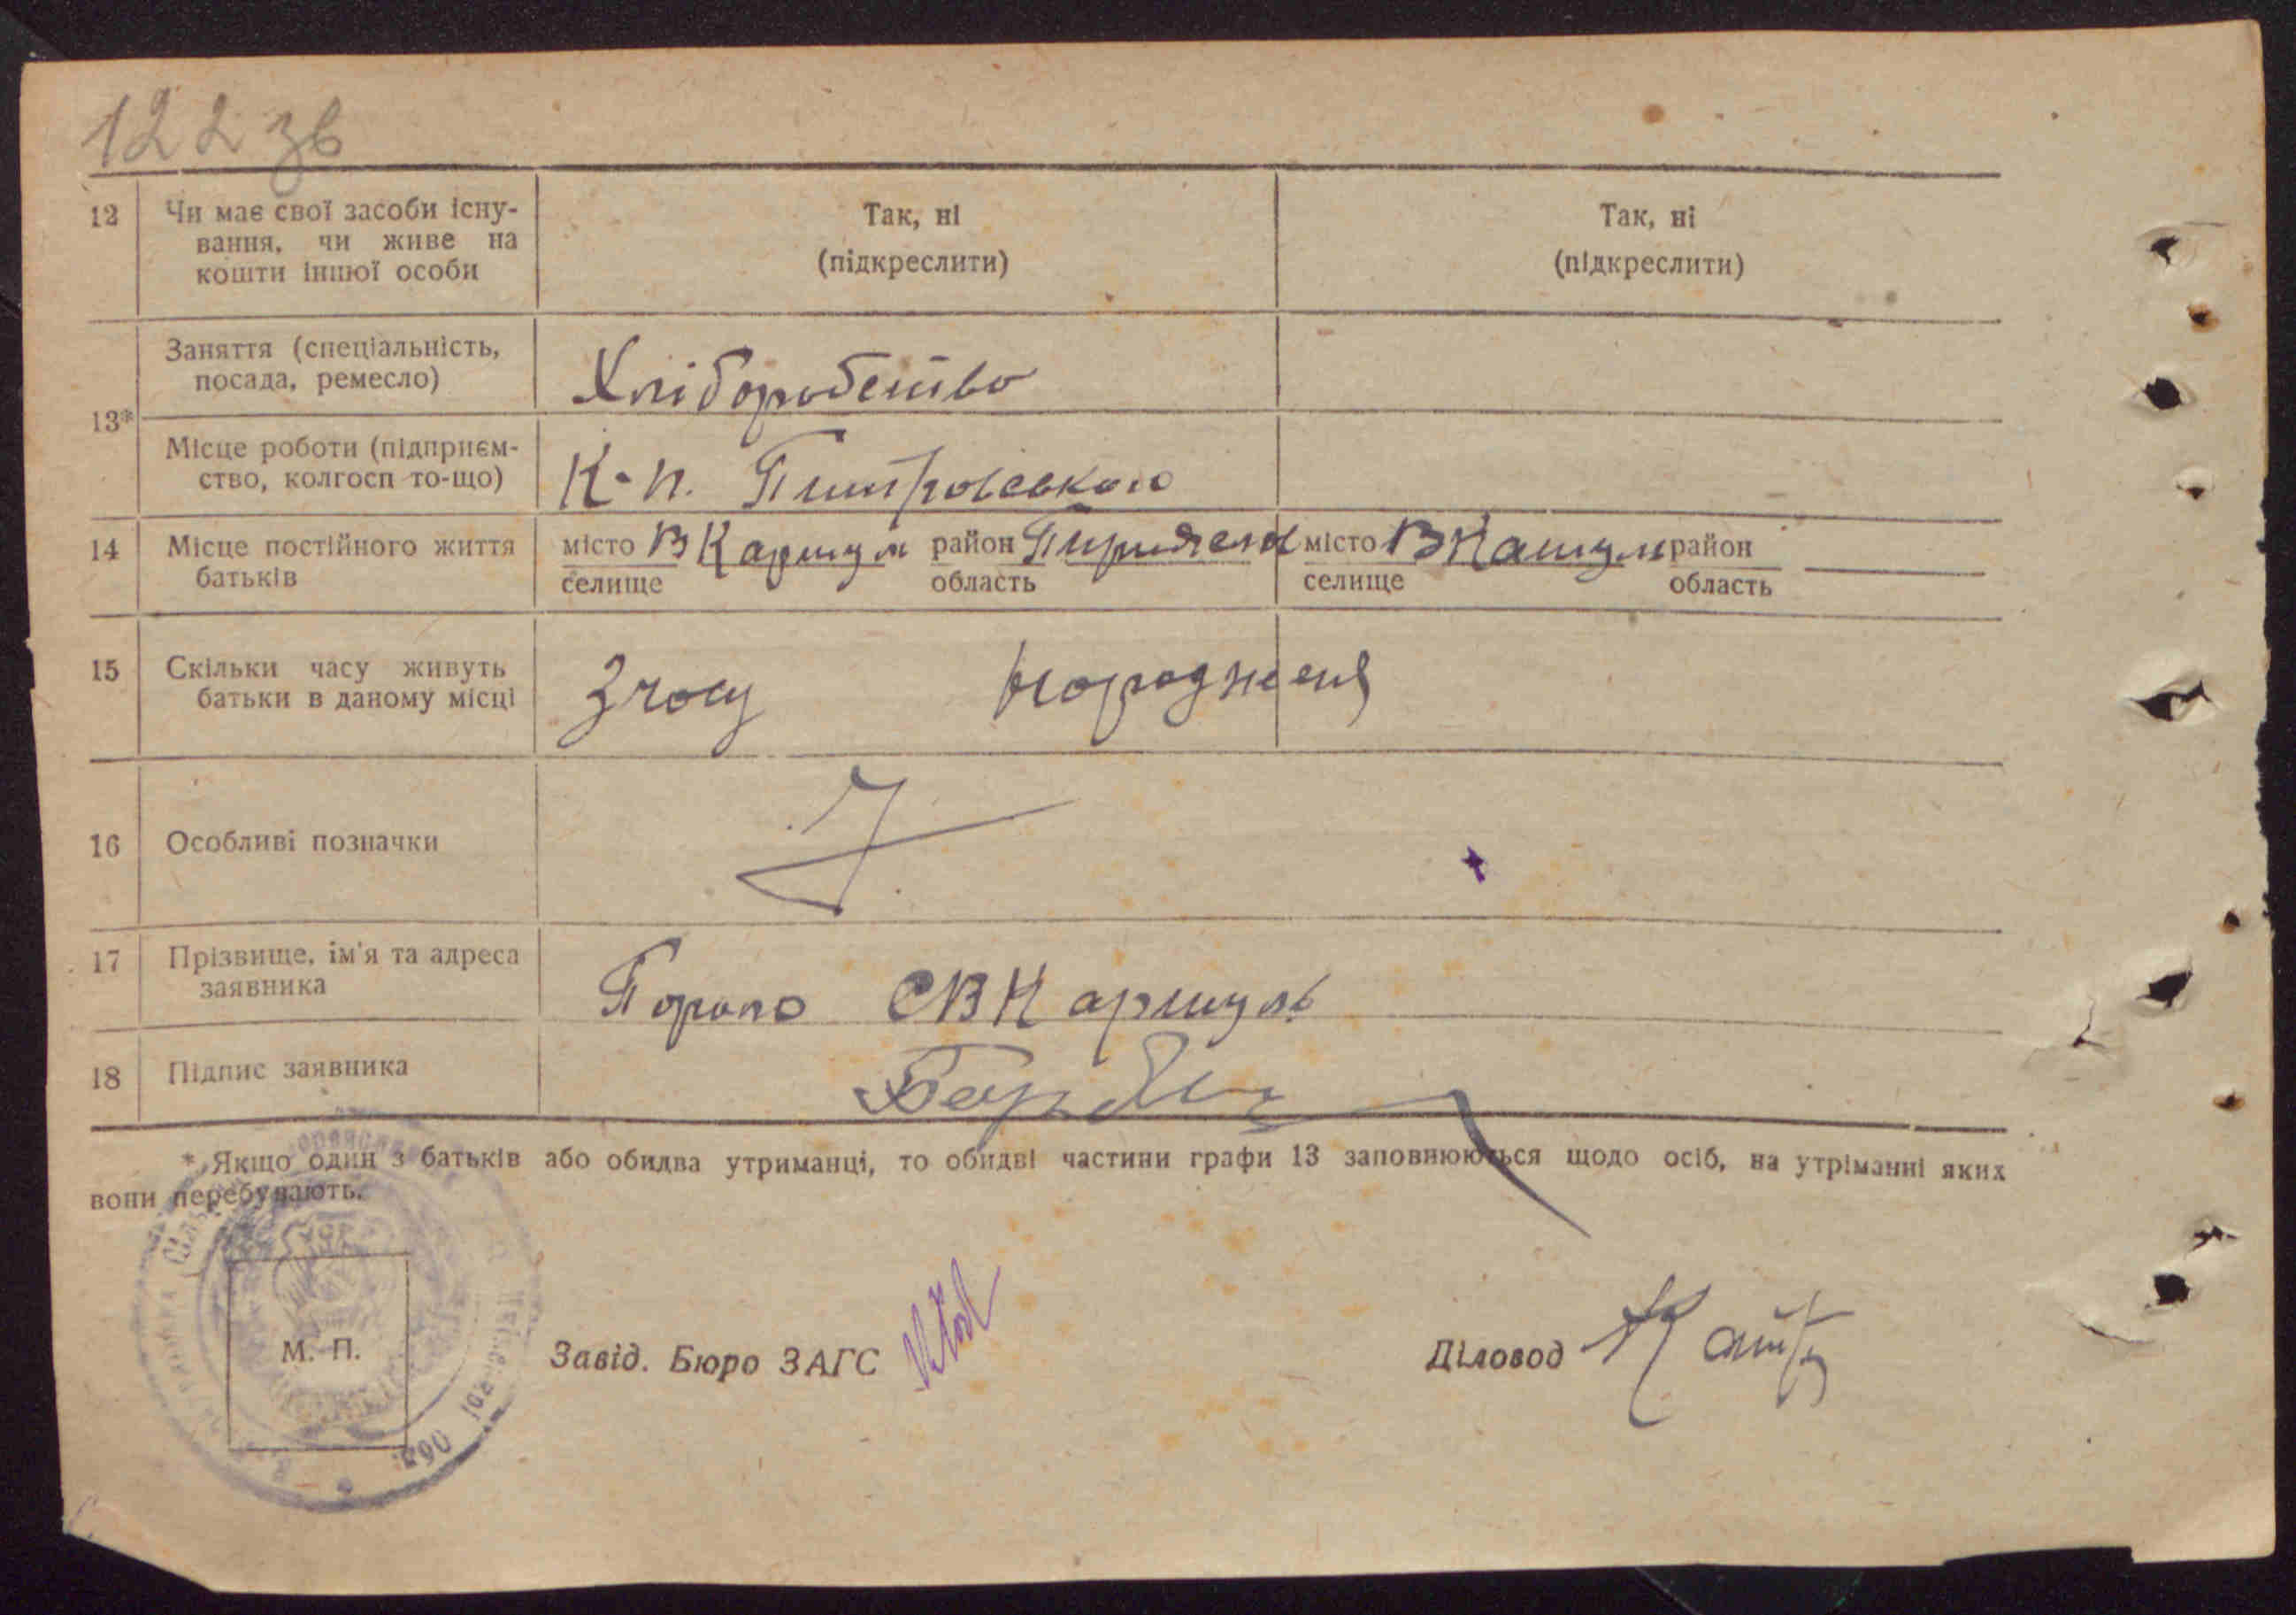 122 зв
12 Чи має свої засоби існу-
вання, чи живе на
кошти іншої особи
Так, ні
(підкреслити)
Так, ні
(підкреслити)
13*
Заняття (спеціальність,
посада, ремесло)
Хліборобство
Місце роботи (підприєм-
ство, колгосп то-що)
К-п. Питровського
14 Місце постійного життя
батьків
місто В Каршул район
селище область
місто В Кашул район
селище область
15 Скільки часу живуть
батьки в даному місці
Зчосу народженя
16 Особливі позначки
17 Прізвище, ім'я та адреса
заявника
С В Каршуль
18 Підпис заявника
* Якщо один з батьків або обидва утриманці, то обидві частини графи 13 заповнюються щодо осіб, на утріманні яких
вони перебувають.
М. П.
Завід. Бюро ЗАГС
Діловод